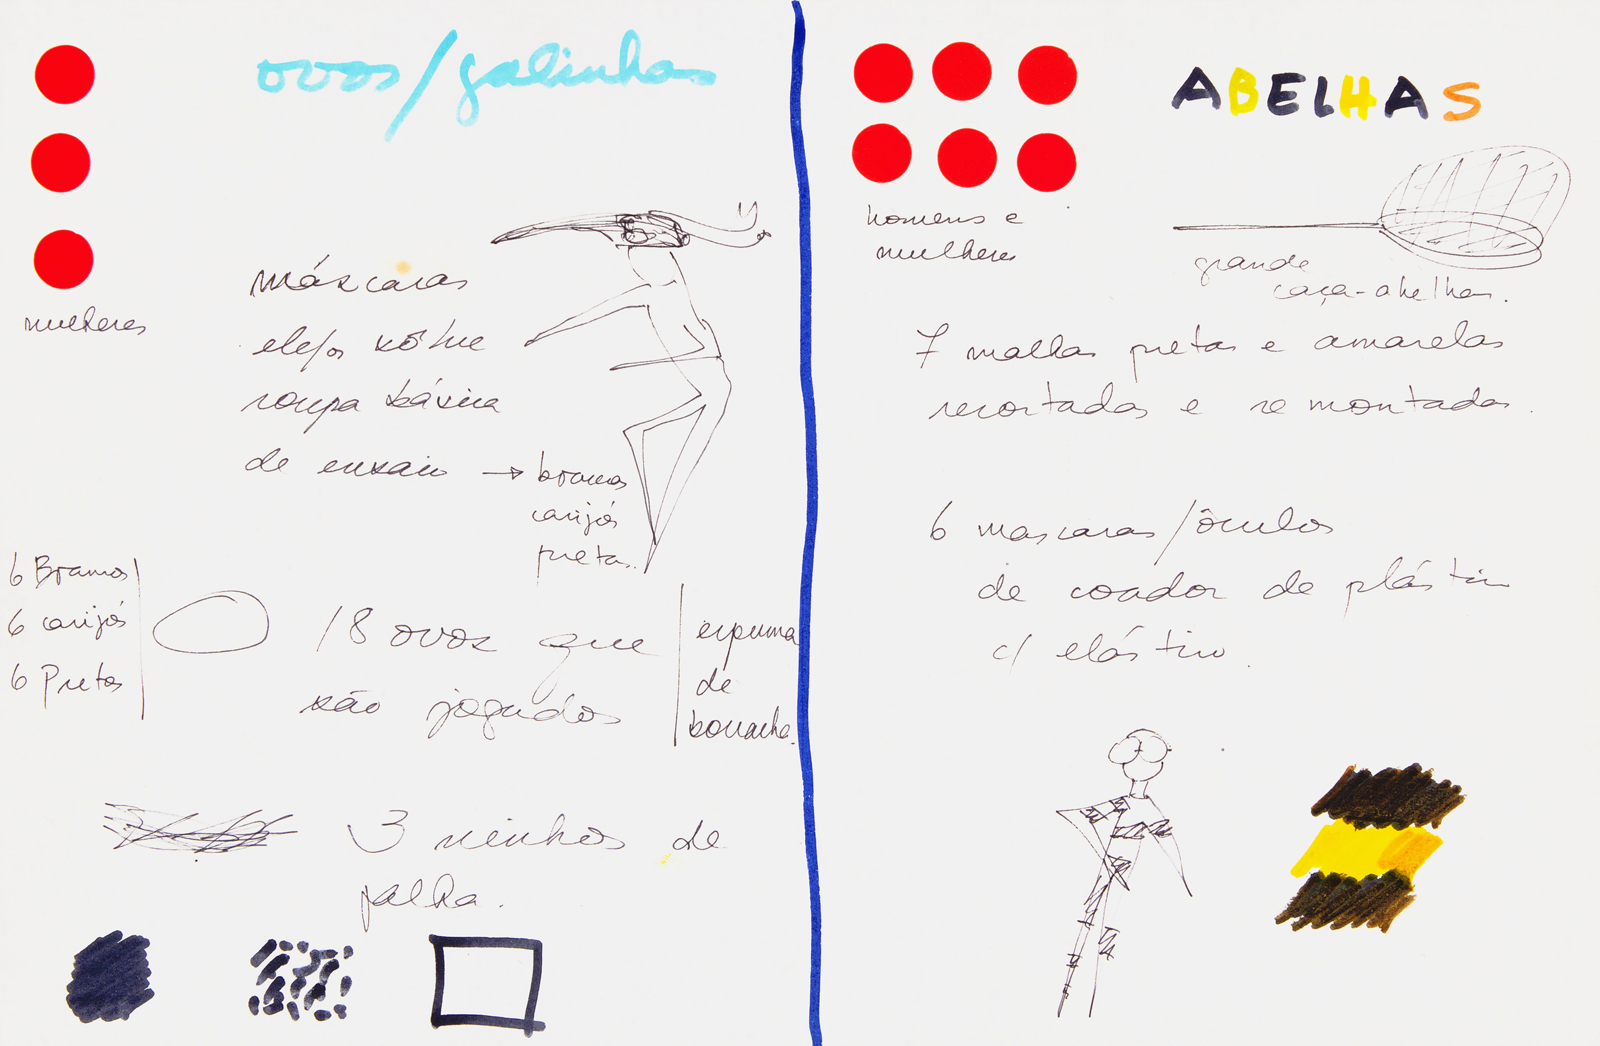 ovos/galinhas
mulheres
máscaras
eles sobre
roupa básica
de ensaio → brancas
carijós
pretas.
6 Brancos
6 carijós
6 Pretos
18 ovos que
são jogados
espuma
de
borracha.
3 ninhos de
palha.
ABELHAS
homens e
mulheres
grande
caça-abelhas.
7 malhas pretas e amarelas
recortadas e remontadas.
6 mascaras/óculos
de coador de plástico
c/ elástico.